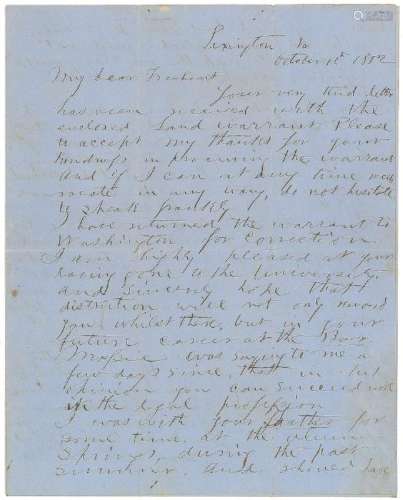 Lexington Va
October 1st 1852
My dear
Your very kind letter
has been received with the
enclosed Land warrant. Please
to accept my thanks for your
kindness in procuring the warrant
And if I can at any time
in any way, do not hesitate
to speak frankly
I have returned the warrant to
Washington for correction.
I am highly pleased at your
having gone to the University
and sincerely hope that
distinction will not only reward
you whilst there, but in your
future career at the Bar
was saying to me a
few days since, that in his
opinion you can succeed well
in the legal profession
I was with your father for
some time at the Alum
Springs, during the past
summer and should have